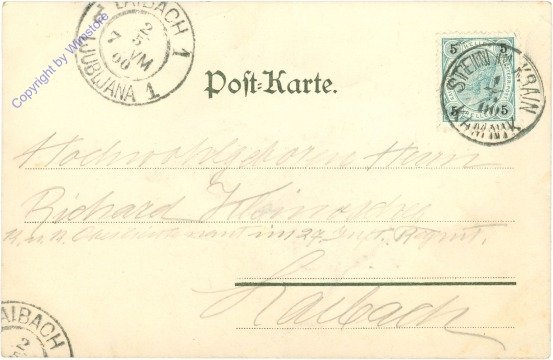 LAIBACH 1
LJUBLJANA 1
2
5
VM
00
Copyright by Winstore
Post-Karte.
5 5
STEIN IN KRAIN
KAMNIK
Hochwohlgeboren Herrn
Richard
K. u. K. Oberlieutenant im 27. Inft. Regmt.
Laibach
LAIBACH
2